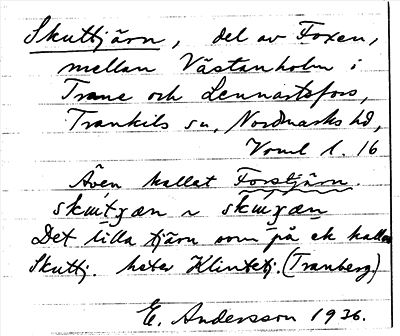 Skuttjärn, del av Foxen,
mellan Västanholm i
Trane och Lennartsfors,
Trankils sn, Nordmarks hd,
Vrml l. 16
Även kallat Forstjärn
Det lilla tjärn som på ek kallas
Skuttj. heter Klintetj. (Tranberg)
E. Andersson 1936.